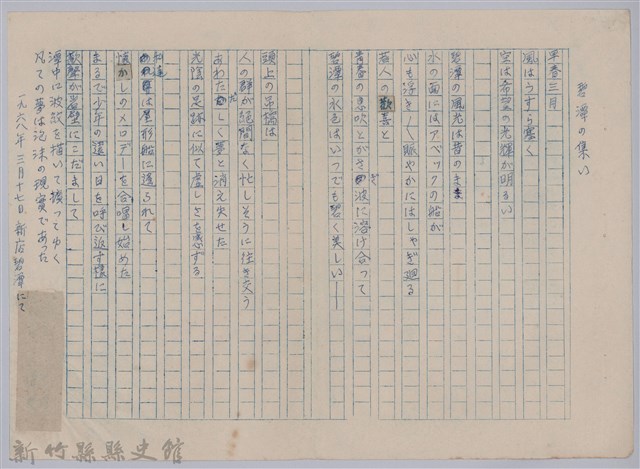 碧潭の集い
早春三月
風はうすら寒く
空は希望の光輝が明るい
碧潭の風光は昔のまま
水の面にはアベックの船が
心も浮き〱賑やかにはしゃぎ廻る
恋人の歓喜と
青春の息吹とがさざ波に溶け合って
碧潭の水色はいつでも碧く美しい──
頭上の吊橋は
人の群が絶間なく忙しそうに往き交う
あわただしく夢と消え失せた
光陰の足跡に似て虚しさを感ずる
私達は屋形船に送られて
懐かしのメロデーを合唱し始めた
まるで少年の遠い日を呼び返す様に
歌声が岩壁にこだまして
潭中に波紋を描いて拡ってゆく
凡ての夢は泡沫の現実であった
一九六八年三月十七日 新店碧潭にて
新竹縣縣史館